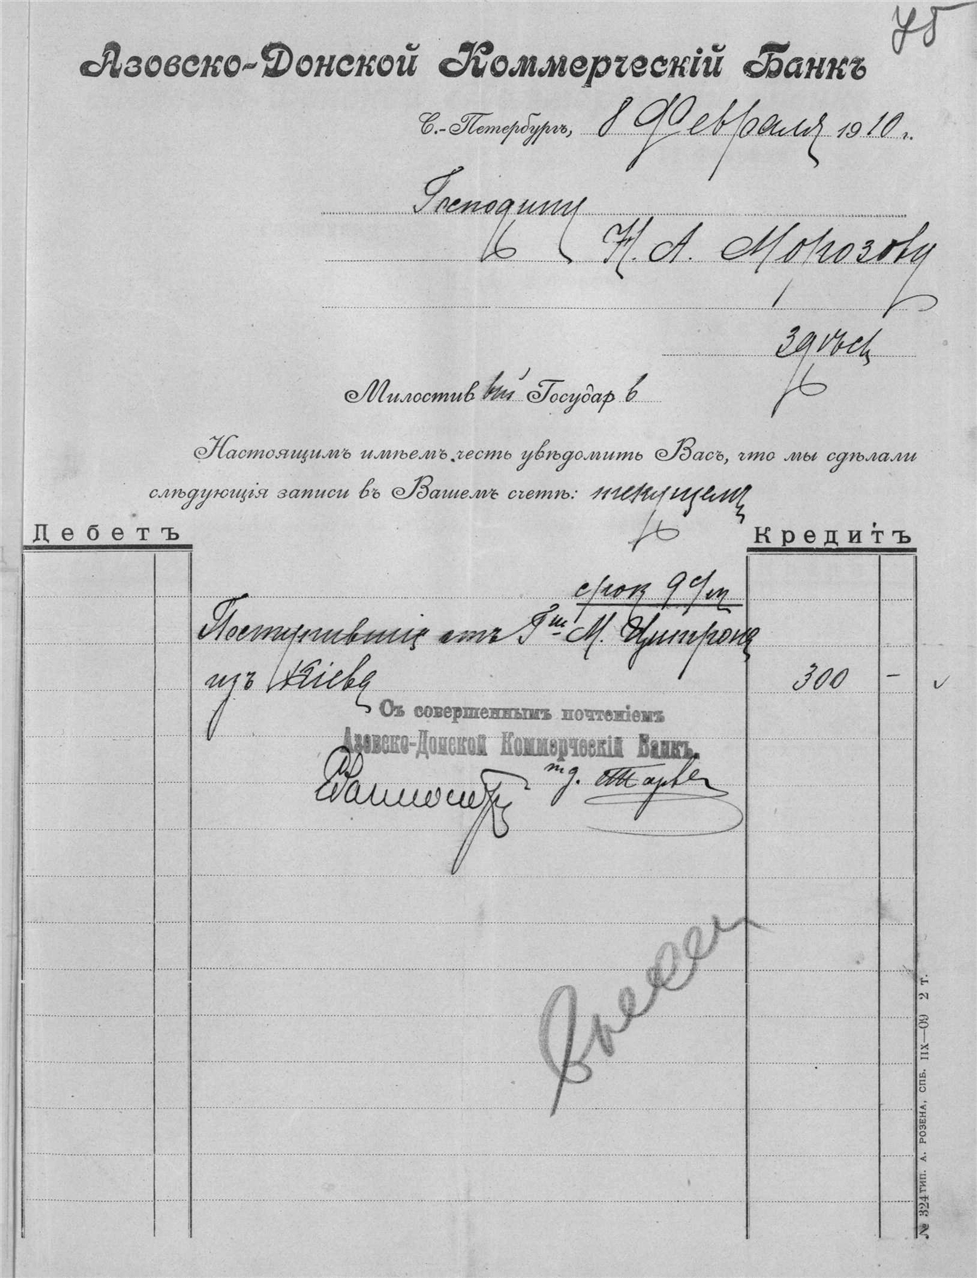 75
Азовско-Донской Коммерческій Банкъ
С.-Петербургъ, 8 Февраля 1910 г.
Господину
Н. А. Морозову
Здѣсь
Милостивый Государь
Настоящимъ имѣемъ честь увѣдомить Васъ, что мы сдѣлали
слѣдующія записи въ Вашемъ счетѣ: текущему
Дебетъ
Кредитъ
срок 9 с/м
Поступившіе отъ Г-на М. Цитрона
изъ Кіева 300 -
Съ совершеннымъ почтеніемъ
Азовско-Донской Коммерческій Банкъ.
№ 324 ТИП. А. РОЗЕНА, СПБ. IIX—09 2 т.